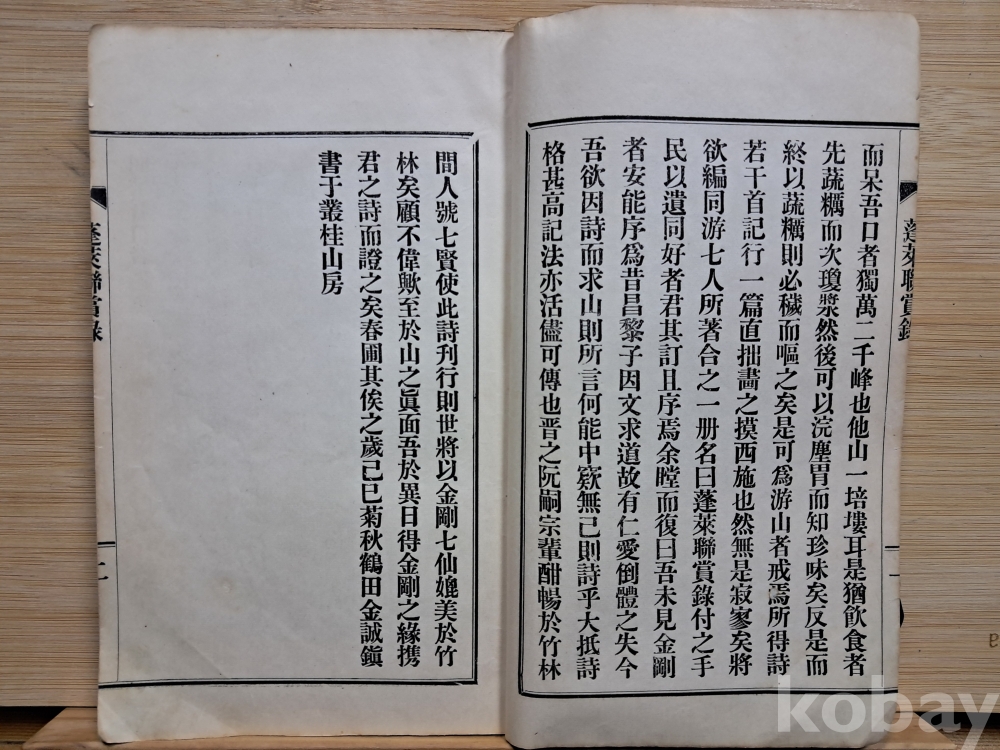 蓬萊聯賞錄
一
而呆吾口者獨萬二千峰也他山一培塿耳是猶飮食者
先蔬糲而次瓊漿然後可以浣塵胃而知珍味矣反是而
終以蔬糲則必穢而嘔之矣是可爲游山者戒焉所得詩
若干首記行一篇直拙畵之摸西施也然無是寂寥矣將
欲編同游七人所著合之一册名曰蓬萊聯賞錄付之手
民以遺同好者君其訂且序焉余瞠而復曰吾未見金剛
者安能序爲昔昌黎子因文求道故有仁愛倒體之失今
吾欲因詩而求山則所言何能中窾無已則詩乎大抵詩
格甚高記法亦活儘可傳也晋之阮嗣宗輩酣暢於竹林
間人號七賢使此詩刊行則世將以金剛七仙媲美於竹
林矣顧不偉歟至於山之眞面吾於異日得金剛之緣携
君之詩而證之矣春圃其俟之歲己巳菊秋鶴田金誠鎭
書于叢桂山房
蓬萊聯賞錄
二
kobay